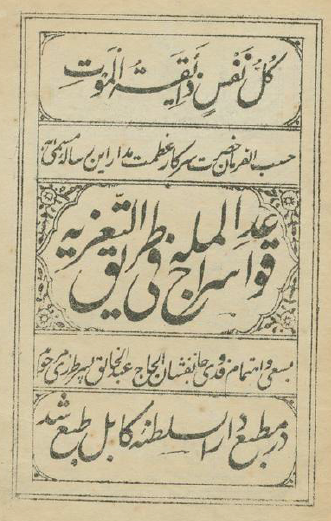 كُلُّ نَفْسٍ ذَائِقَةُ الْمَوْتِ
حسب الفرمان حضرت سرکار عظمت مدار این رساله مسمی به
قواعد سراج الملة فی طریق التعزیه
بسعی و اهتمام فدوی جانفشان الحاج عبدالخالق
در مطبع دارالسلطنه کابل طبع شد